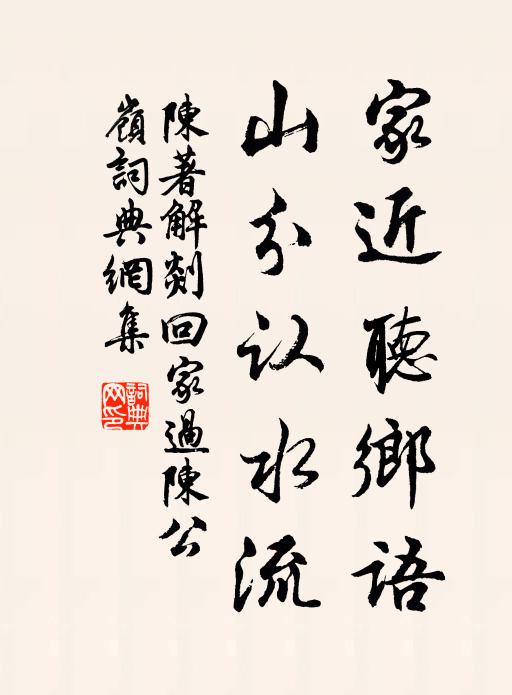 家近聽鄉語
山分认水流
陳著解剡回家過陳公
嶺詞典網集
詞典网印